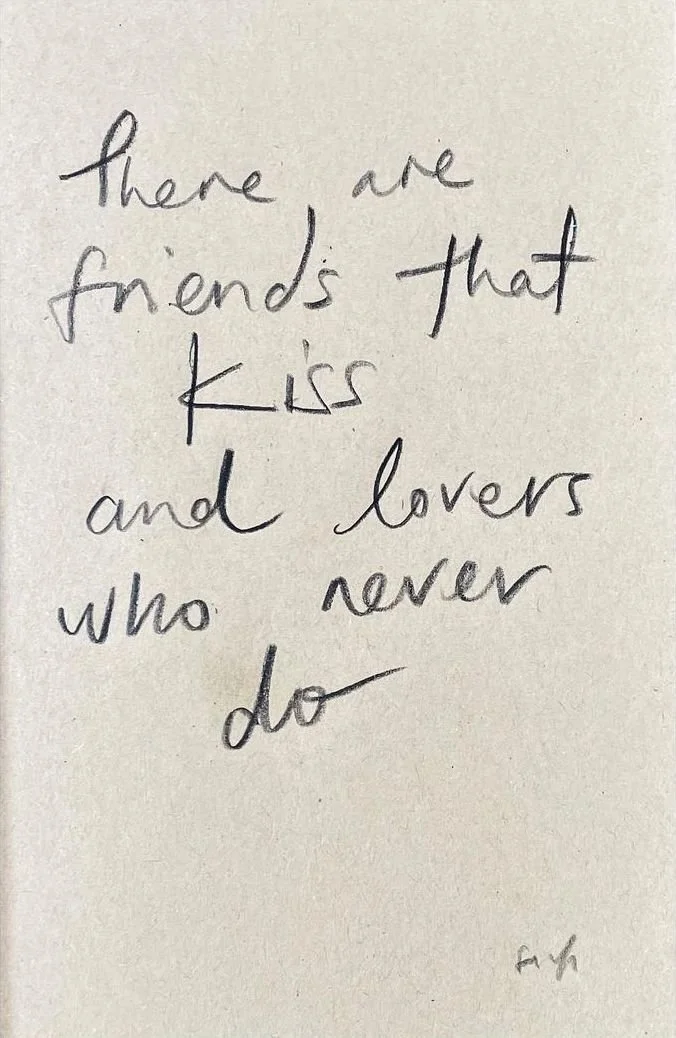 there are
friends that
kiss
and lovers
who never
do